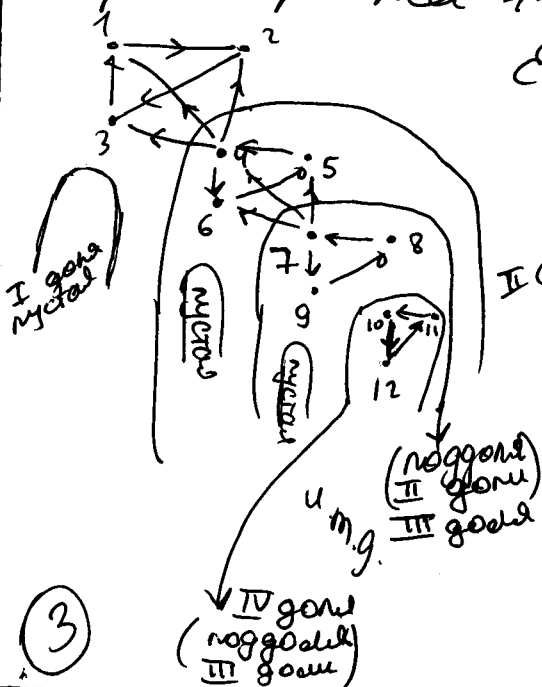 1
2
3
5
6
7
8
9
10
11
12
I доля
пустая
пустая
пустая
II
(поддоля
II доли)
III доля
и т.д.
IV доля
(поддоля
III доли)
3